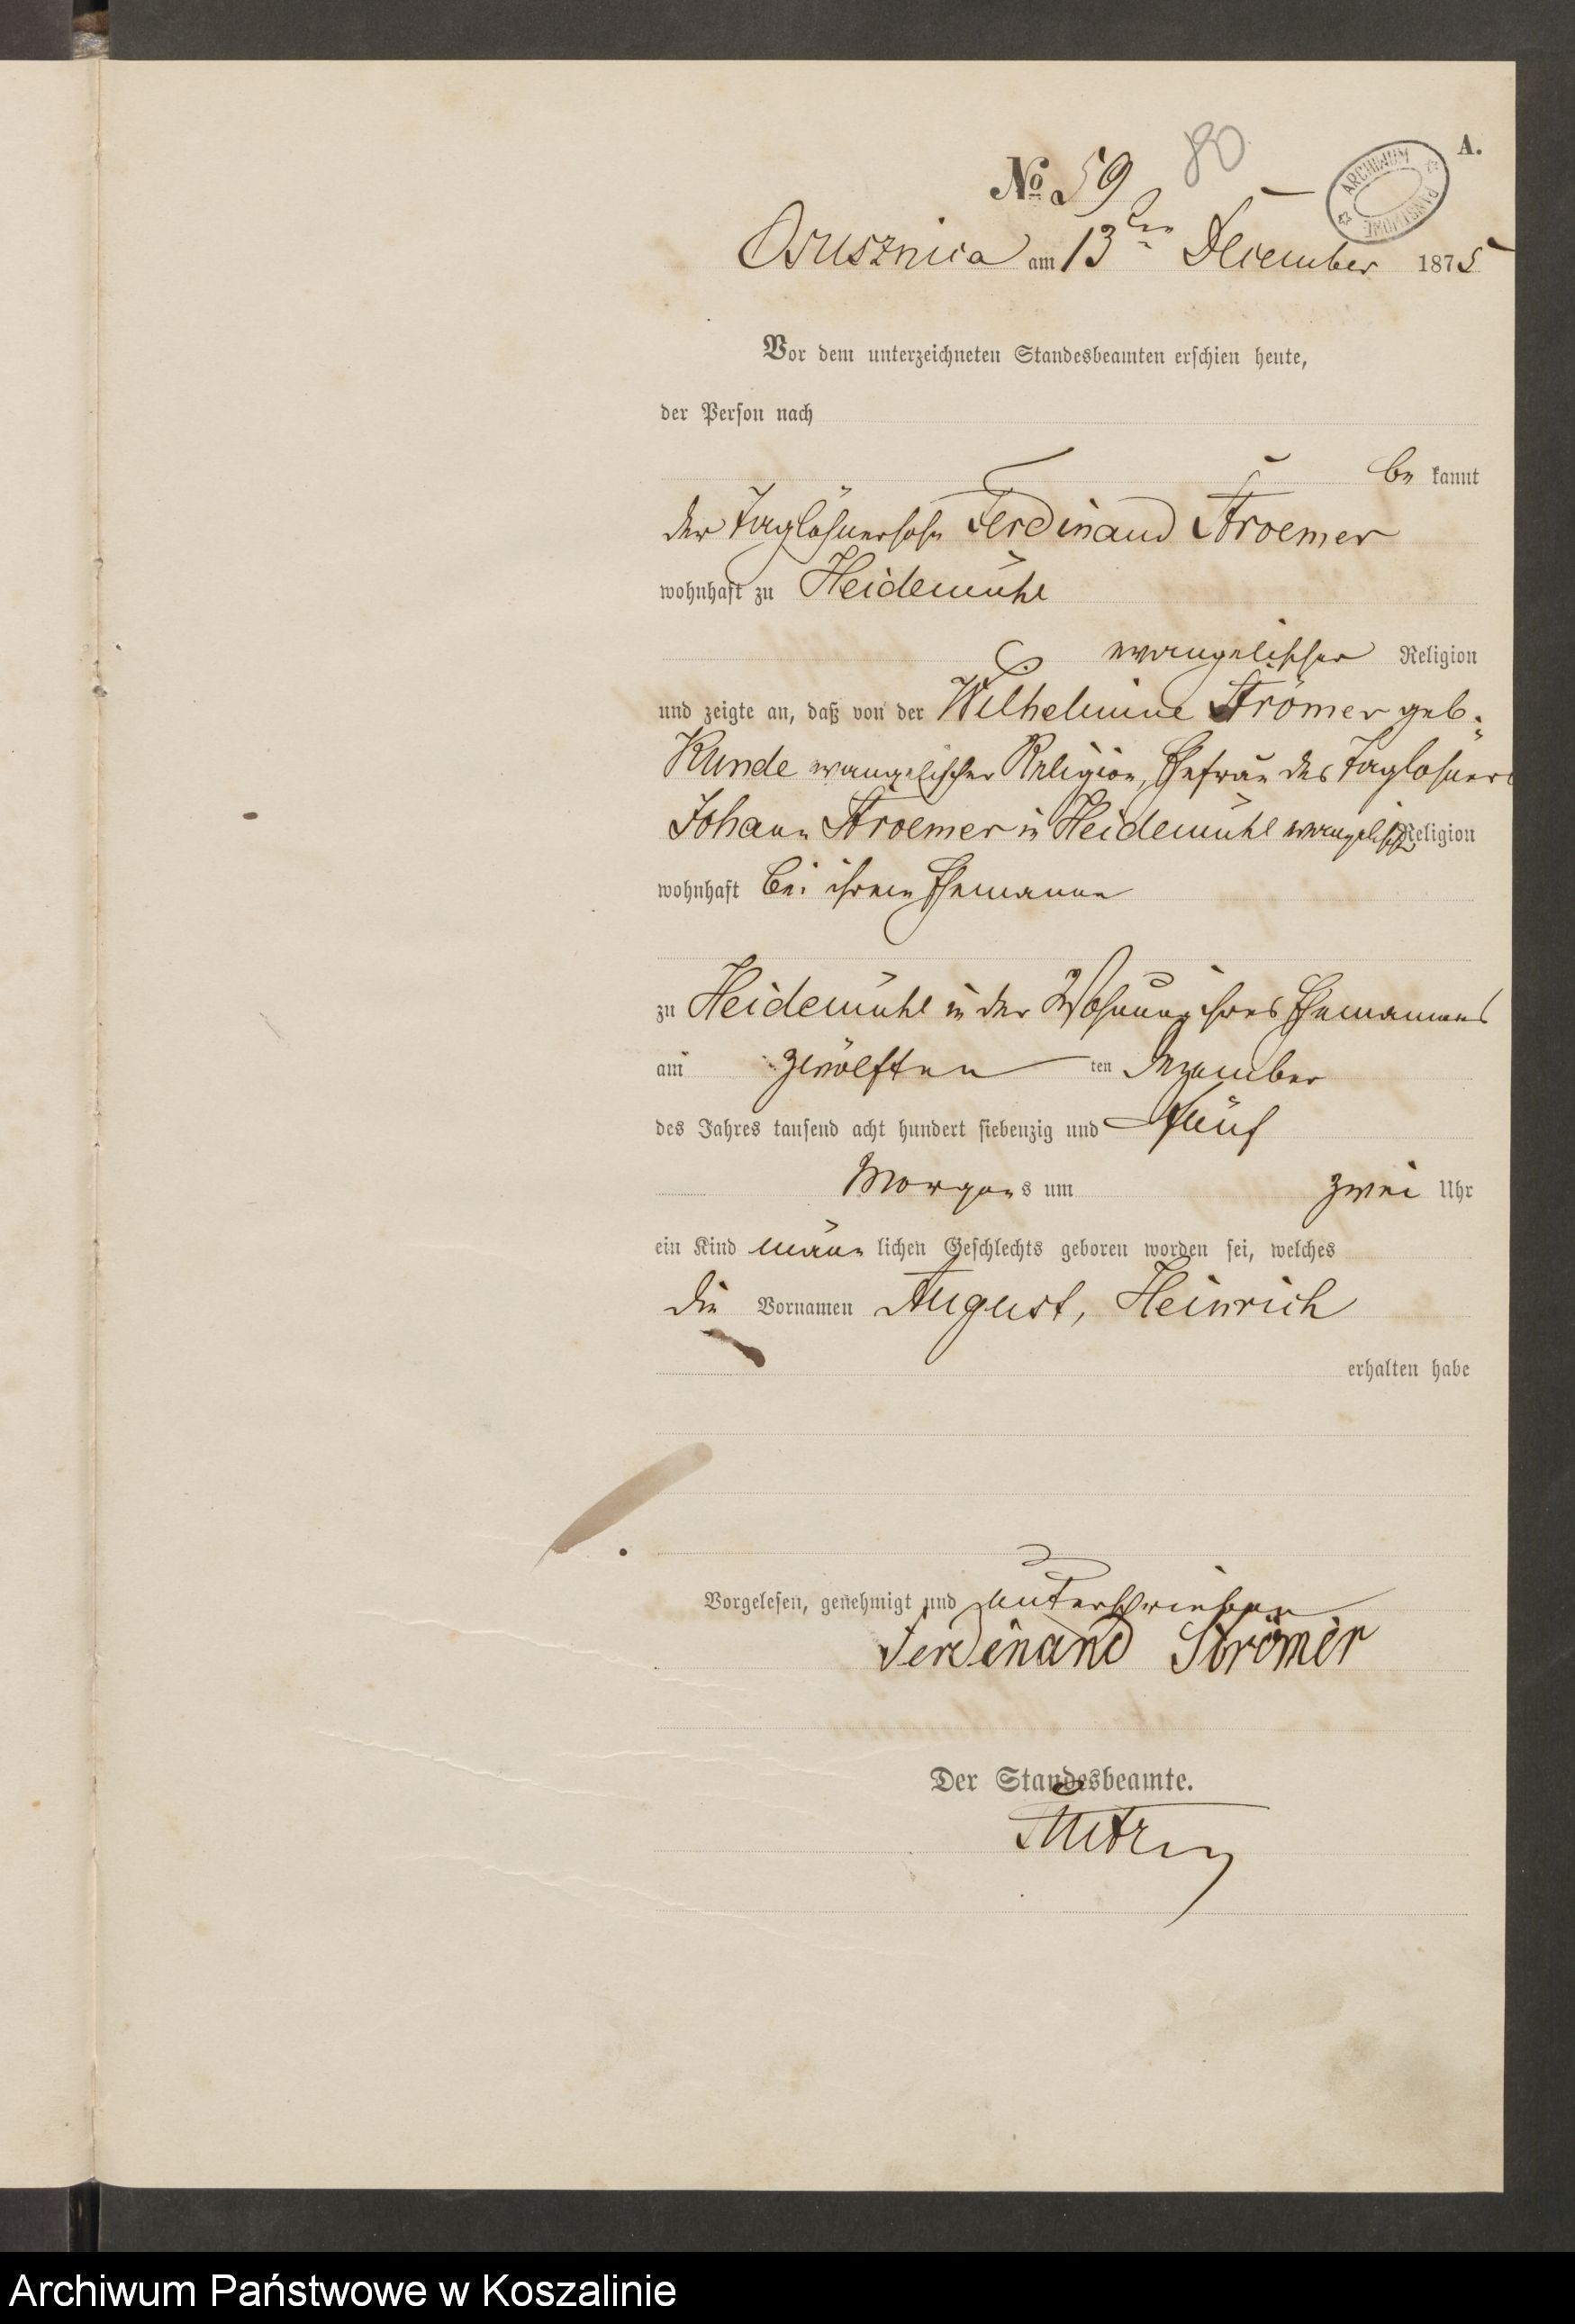 80
A.
ARCHIWUM PAŃSTWOWE
No 59
Osusznica am 13ten December 1875
Vor dem unterzeichneten Standesbeamten erschien heute,
der Person nach
be kannt
der Taglöhnersohn Ferdinand Stroemer
wohnhaft zu Heidemühl
evangelischer Religion
und zeigte an, daß von der Wilhelmine Strömer geb.
Kunde evangelischer Religion, Ehefrau des Taglöhners
Johann Stroemer in Heidemühl evangelisch Religion
wohnhaft bei ihrem Ehemanne
zu Heidemühl in der Wohnung ihres Ehemannes
am zwölften ten Dezember
des Jahres tausend acht hundert siebenzig und fünf
Morgens um zwei Uhr
ein Kind männlichen Geschlechts geboren worden sei, welches
die Vornamen August, Heinrich
erhalten habe
Vorgelesen, genehmigt und unterschrieben
Ferdinand Strömer
Der Standesbeamte.
Archiwum Państwowe w Koszalinie